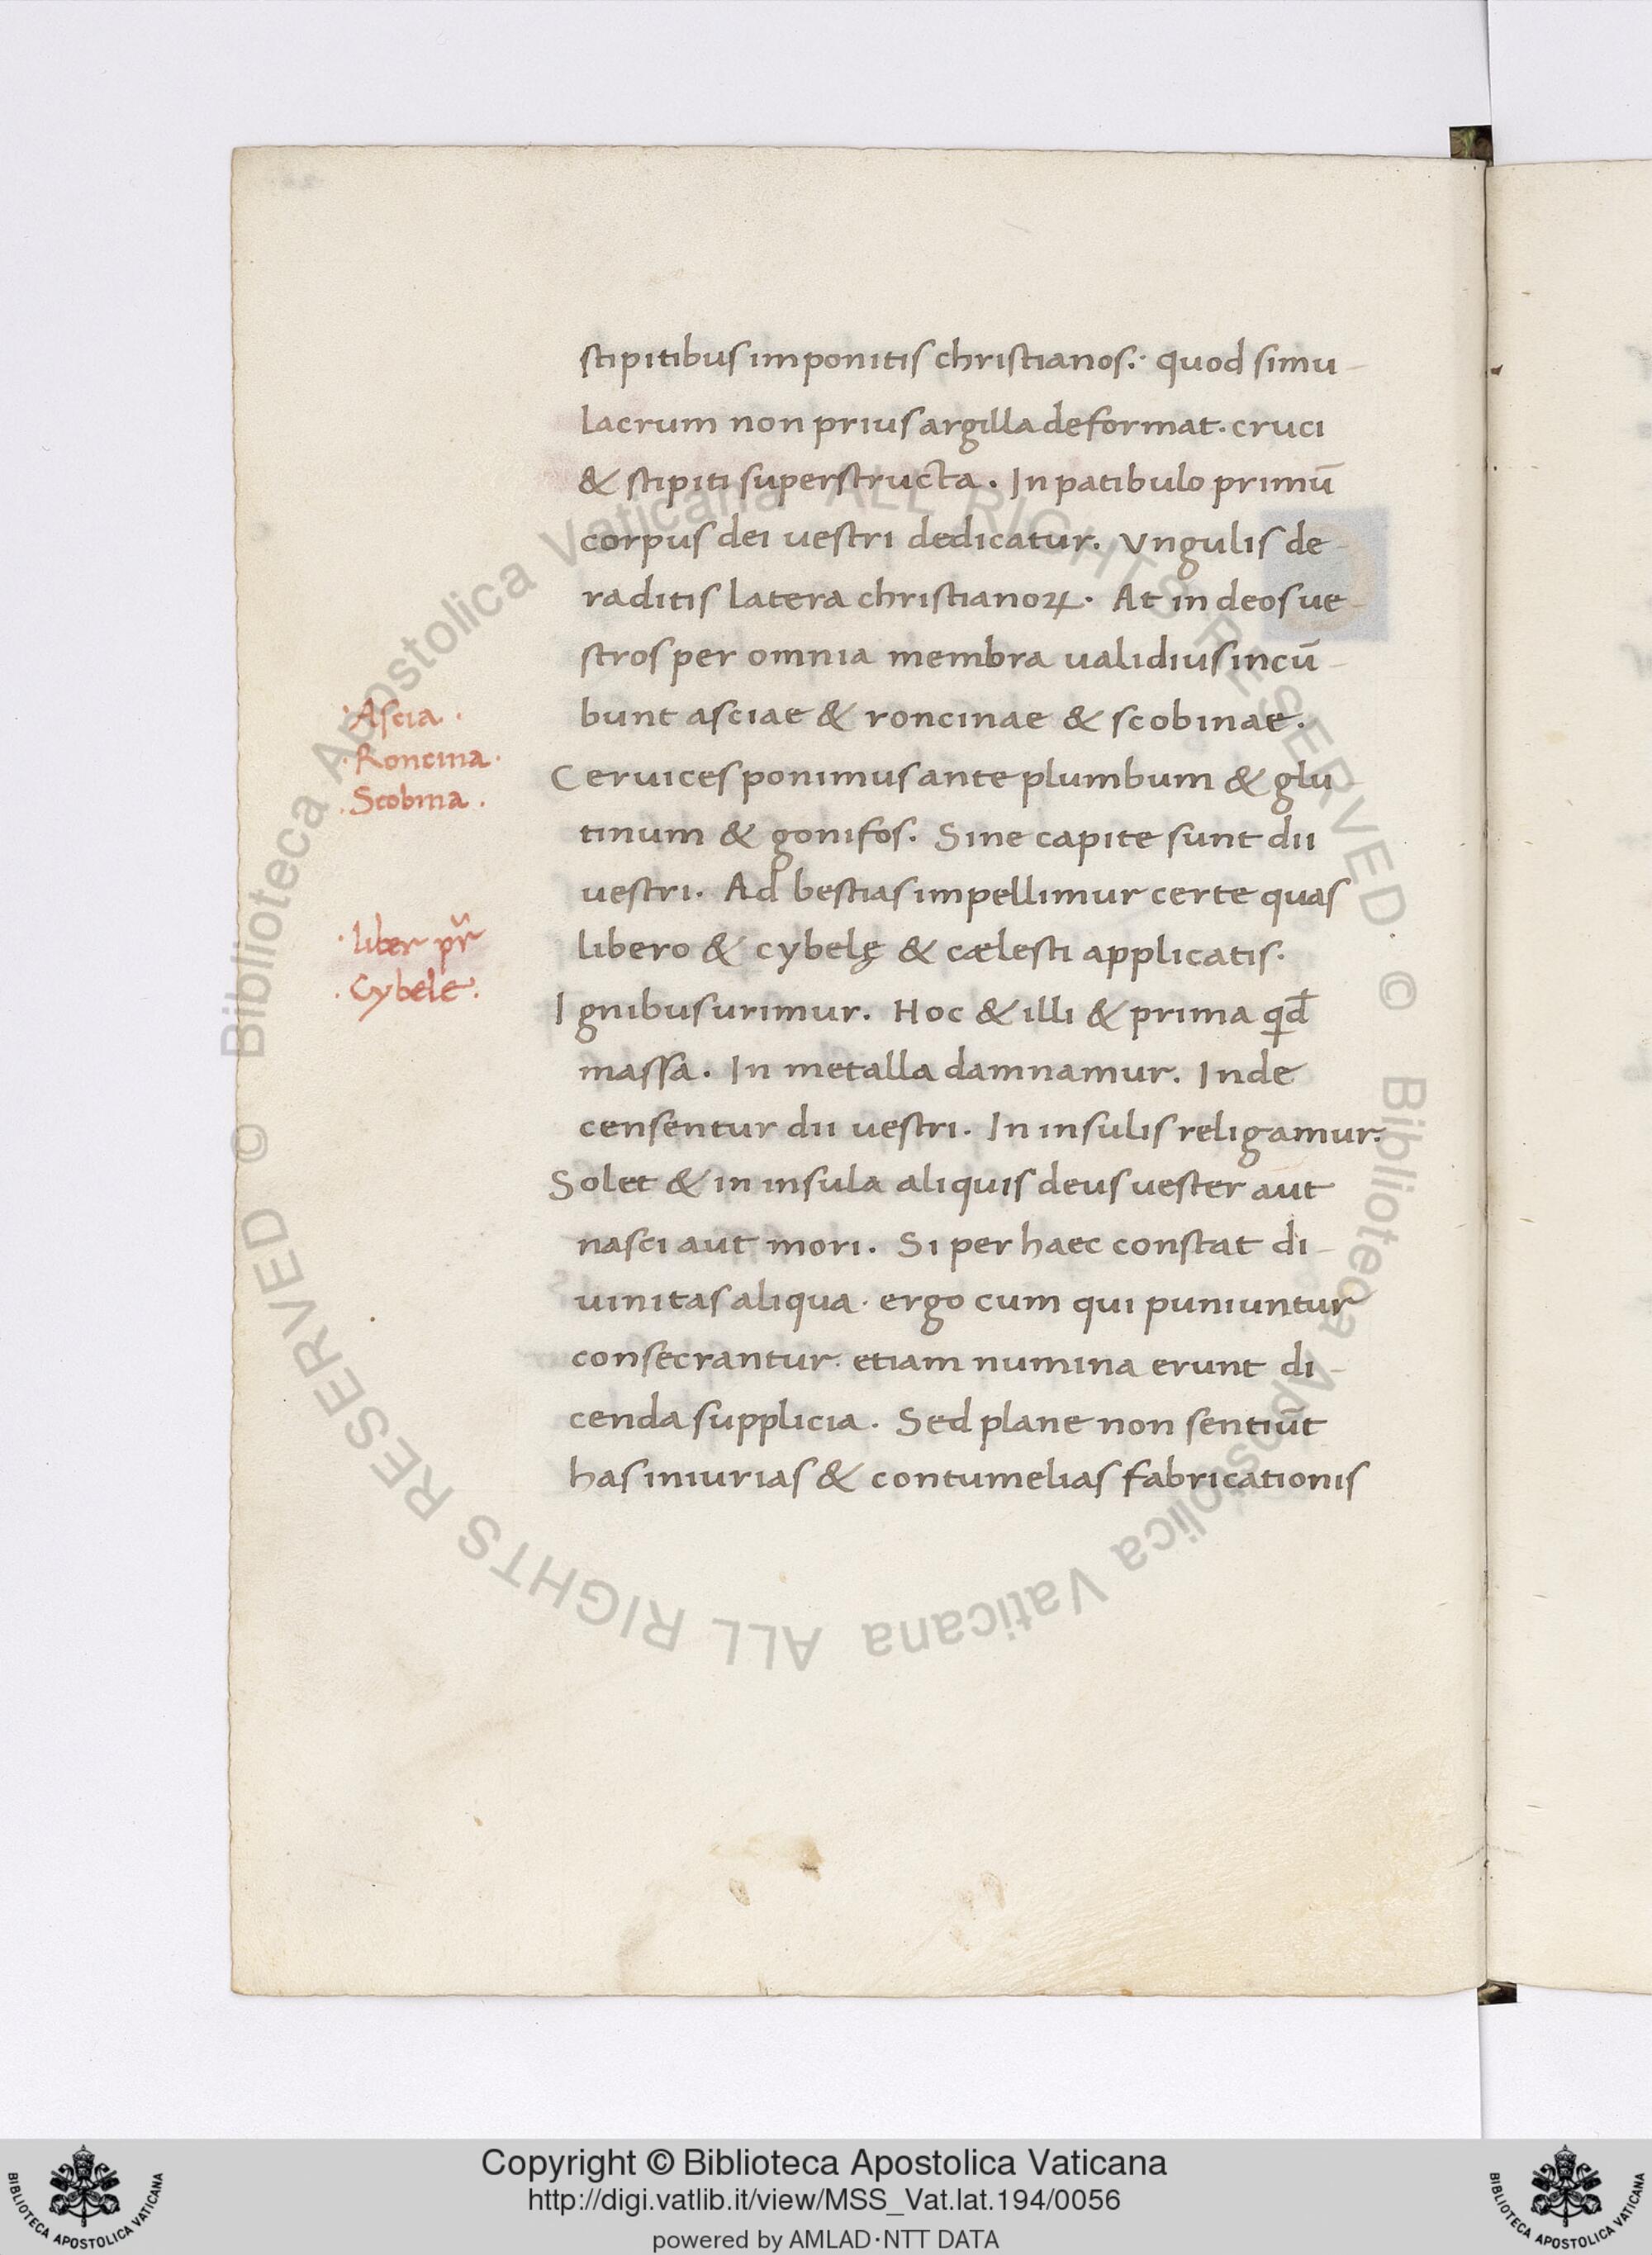 stipitibus imponitis christianos.· quod simu-
lacrum non prius argilla deformat. cruci
& stipiti superstructa. In patibulo primū
corpus dei uestri dedicatur. Vngulis de-
raditis latera christianoꝝ. At in deos ue-
stros per omnia membra ualidius incū-
bunt asciae & roncinae & scobinae.
Ceruices ponimus ante plumbum & glu
tinum & gonifos. Sine capite sunt dii
uestri. Ad bestias impellimur certe quas
libero & cybelę & cælesti applicatis.
Ignibus urimur. Hoc & illi & prima qd̄
massa. In metalla damnamur. Inde
censentur dii uestri. In insulis religamur.
Solet & in insula aliquis deus uester aut
nasci aut mori. Si per haec constat di-
uinitas aliqua. ergo cum qui puniuntur
consecrantur. etiam numina erunt di-
cenda supplicia. Sed plane non sentiūt
has iniurias & contumelias fabricationis
·Ascia·
·Roncina·
·Scobina·
·liber pr̄
·Cybele·
© Biblioteca Apostolica Vaticana ALL RIGHTS RESERVED · © Biblioteca Apostolica Vaticana ALL RIGHTS RESERVED
Copyright © Biblioteca Apostolica Vaticana
http://digi.vatlib.it/view/MSS_Vat.lat.194/0056
powered by AMLAD·NTT DATA
BIBLIOTECA APOSTOLICA VATICANA
BIBLIOTECA APOSTOLICA VATICANA